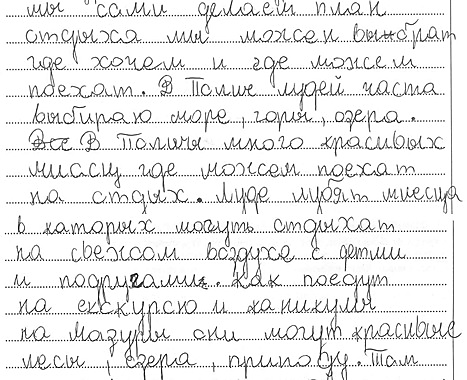 мы сами делаем план
отдыха ми можем выбрат
где хочем и где можем
поехат. В Полше людей часта
выбираю море, горы, озера.
Все В Полшы много красивых
миасц где можем поехат
на отдых. Луде лубят миесца
в каторых могуть отдыхат
на свежом воздухе с детми
и подругами. Как поедут
на екскурсю и каникулы
на Мазуры они могут красивые
лесы, озера, приподу. Там